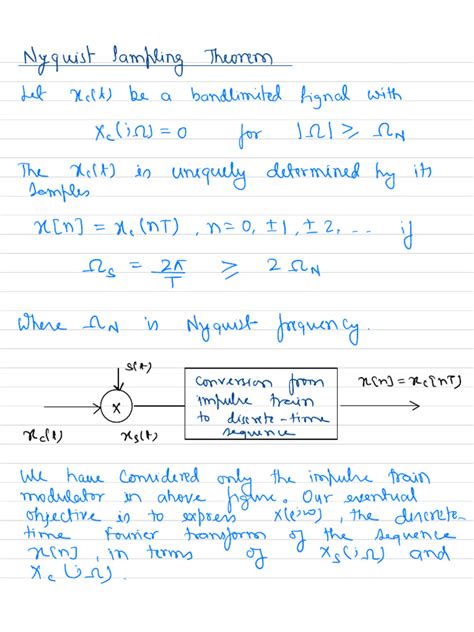 Nyquist Sampling Theorem
Let xc(t) be a bandlimited signal with
Xc(jΩ) = 0 for |Ω| ⩾ ΩN
The xc(t) is uniquely determined by its
samples
x[n] = xc(nT), n = 0, ±1, ±2, ... if
Ωs = 2π/T ⩾ 2ΩN
Where ΩN is Nyquist frequency.
s(t)
X
xc(t)
xs(t)
conversion from
impulse train
to discrete-time
sequence
x[n] = xc[nT)
We have considered only the impulse train
modulator in above figure. Our eventual
objective is to express X(e^jω), the discrete-
time Fourier transform of the sequence
x[n], in terms of Xs(jΩ) and
Xc(jΩ).